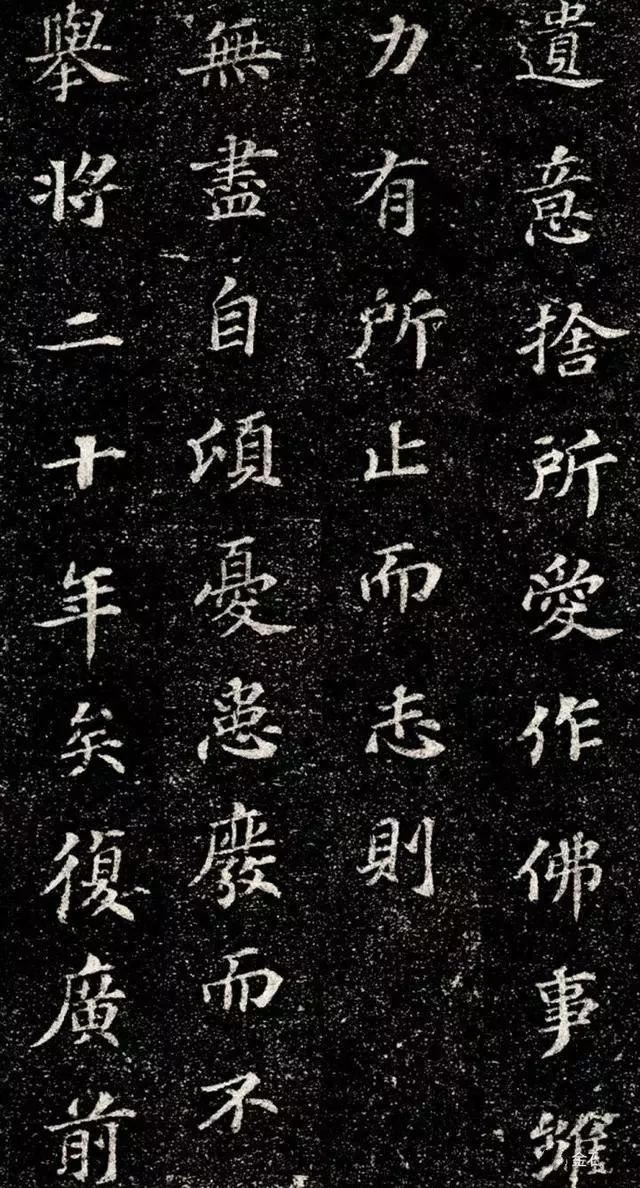 遺意捨所愛作佛事雖
力有所止而志則
無盡自頃憂患廢而不
舉將二十年矣復廣前
金石